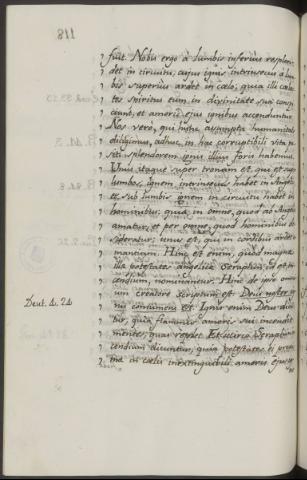 118
fuit. Nobis ergo à lumbis inferius resplen-
det in circuitu, cujus ignis intrinsecus à lum-
bis superius ardet in cælo; quia illi cæles-
tes spiritus eum in divinitate sua conspi-
ciunt, et amoris ejus ignibus accenduntur.
Nos verò, qui hunc assumpta humanitate
diligimus, adhuc in hac corruptibili vita po-
siti splendorem ignis illius foris habemus.
Unus itaque super tronum est, qui et super
lumbos ignem intrinsecus habet in Angelis,
et sub lumbis ignem in circuitu habet in
hominibus: quia in omne, quod ab Angelis
amatur, et per omne, quod hominibus de-
sideratur, unus est, qui in cordibus ardet a-
mantium. Hinc est enim, quod magna
illa potestates angelicæ Seraphim, id est in-
cendium, nominantur. Hinc de ipso omni-
um creatore scriptum est: Deus noster ig-
nis consumens est. Ignis enim Deus dici-
tur, quia flammis amoris sui incendit
mentes, quas replet. Et idcirco Seraphim in-
cendium dicuntur, quia potestates ei proxi-
mæ in cælis inextinguibili amoris ejus ig-
Deut. 4. 24